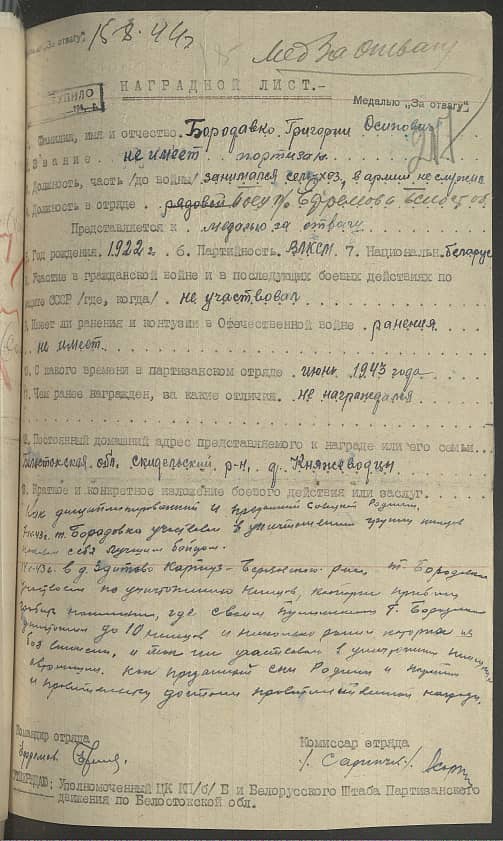 медалью „За отвагу"
15.8.44г
Мед За отвагу
НАГРАДНОЙ ЛИСТ.-
Медалью „За отвагу"
Фамилия, имя и отчество. Бородавко Григории Осипович
2. Звание. не имеет партизан
Должность, часть /до войны/ занимался сел. хоз., в армии не служил
Должность в отряде. рядовой боец п/о Ефремова
Представляется к медалью за отвагу
5. Год рождения. 1922 г. 6. Партийность. ВЛКСМ. 7. Национальн. беларус
Участие в гражданской войне и в последующих боевых действиях по
защите СССР /где, когда/. не участвовал
9. Имеет ли ранения и контузии в Отечественной войне. ранения
не имеет.
10. С какого времени в партизанском отряде. июнь 1943 года
11. Чем ранее награжден, за какие отличия. не награждался
12. Постоянный домашний адрес представляемого к награде или его семьи
Белостокская обл. Скидельский р-н. д. Княжеводцы
13. Краткое и конкретное изложение боевого действия или заслуг.
Как дисциплинированный и преданный Советской Родине,
т. Бородовко участвовал в уничтожении группы немцев
показал себя лучшим бойцом.
в д. Здитово Картуз-Березского р-на, т. Бородавко
участвовал по уничтожению немцев, которые прибыли
грабить население, где своим пулеметом т. Бородавко
уничтожил до 10 немцев и несколько ранил
и так же участвовал в уничтожении
Как преданный сын Родины и партии
и правительству достоин правительственной награды.
Командир отряда
Ефремов
Комиссар отряда
УТВЕРЖДАЮ: Уполномоченный ЦК КП/б/ Б и Белорусского Штаба Партизанского
движения по Белостокской обл.